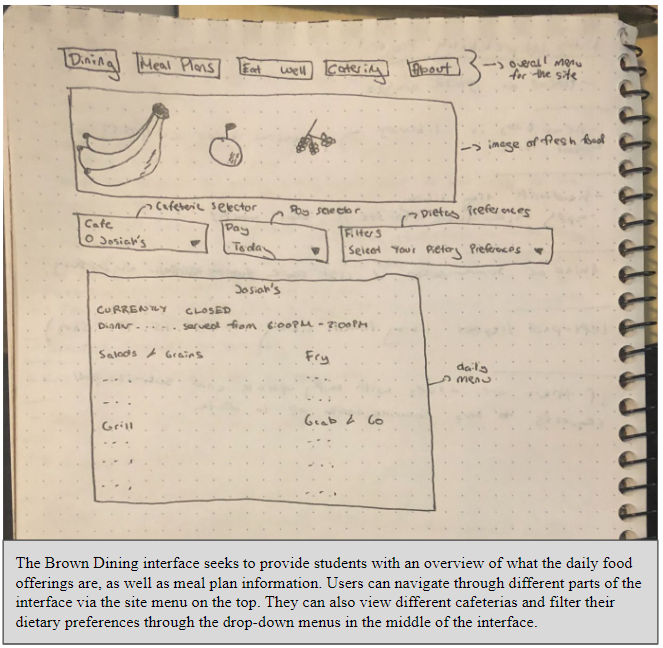 Dining Meal Plans Eat well Catering About → overall menu
for the site
→ image of fresh food
→ Cafeteria selector → Day selector → Dietary Preferences
Cafe Day Filters
O Josiah's ▼ Today ▼ Select Your Dietary Preferences ▼
Josiah's
CURRENTLY CLOSED
Dinner ..... served from 6:00PM - 2:00PM
Salads & Grains Fry
→ daily
menu
Grill Grab & Go
The Brown Dining interface seeks to provide students with an overview of what the daily food
offerings are, as well as meal plan information. Users can navigate through different parts of the
interface via the site menu on the top. They can also view different cafeterias and filter their
dietary preferences through the drop-down menus in the middle of the interface.